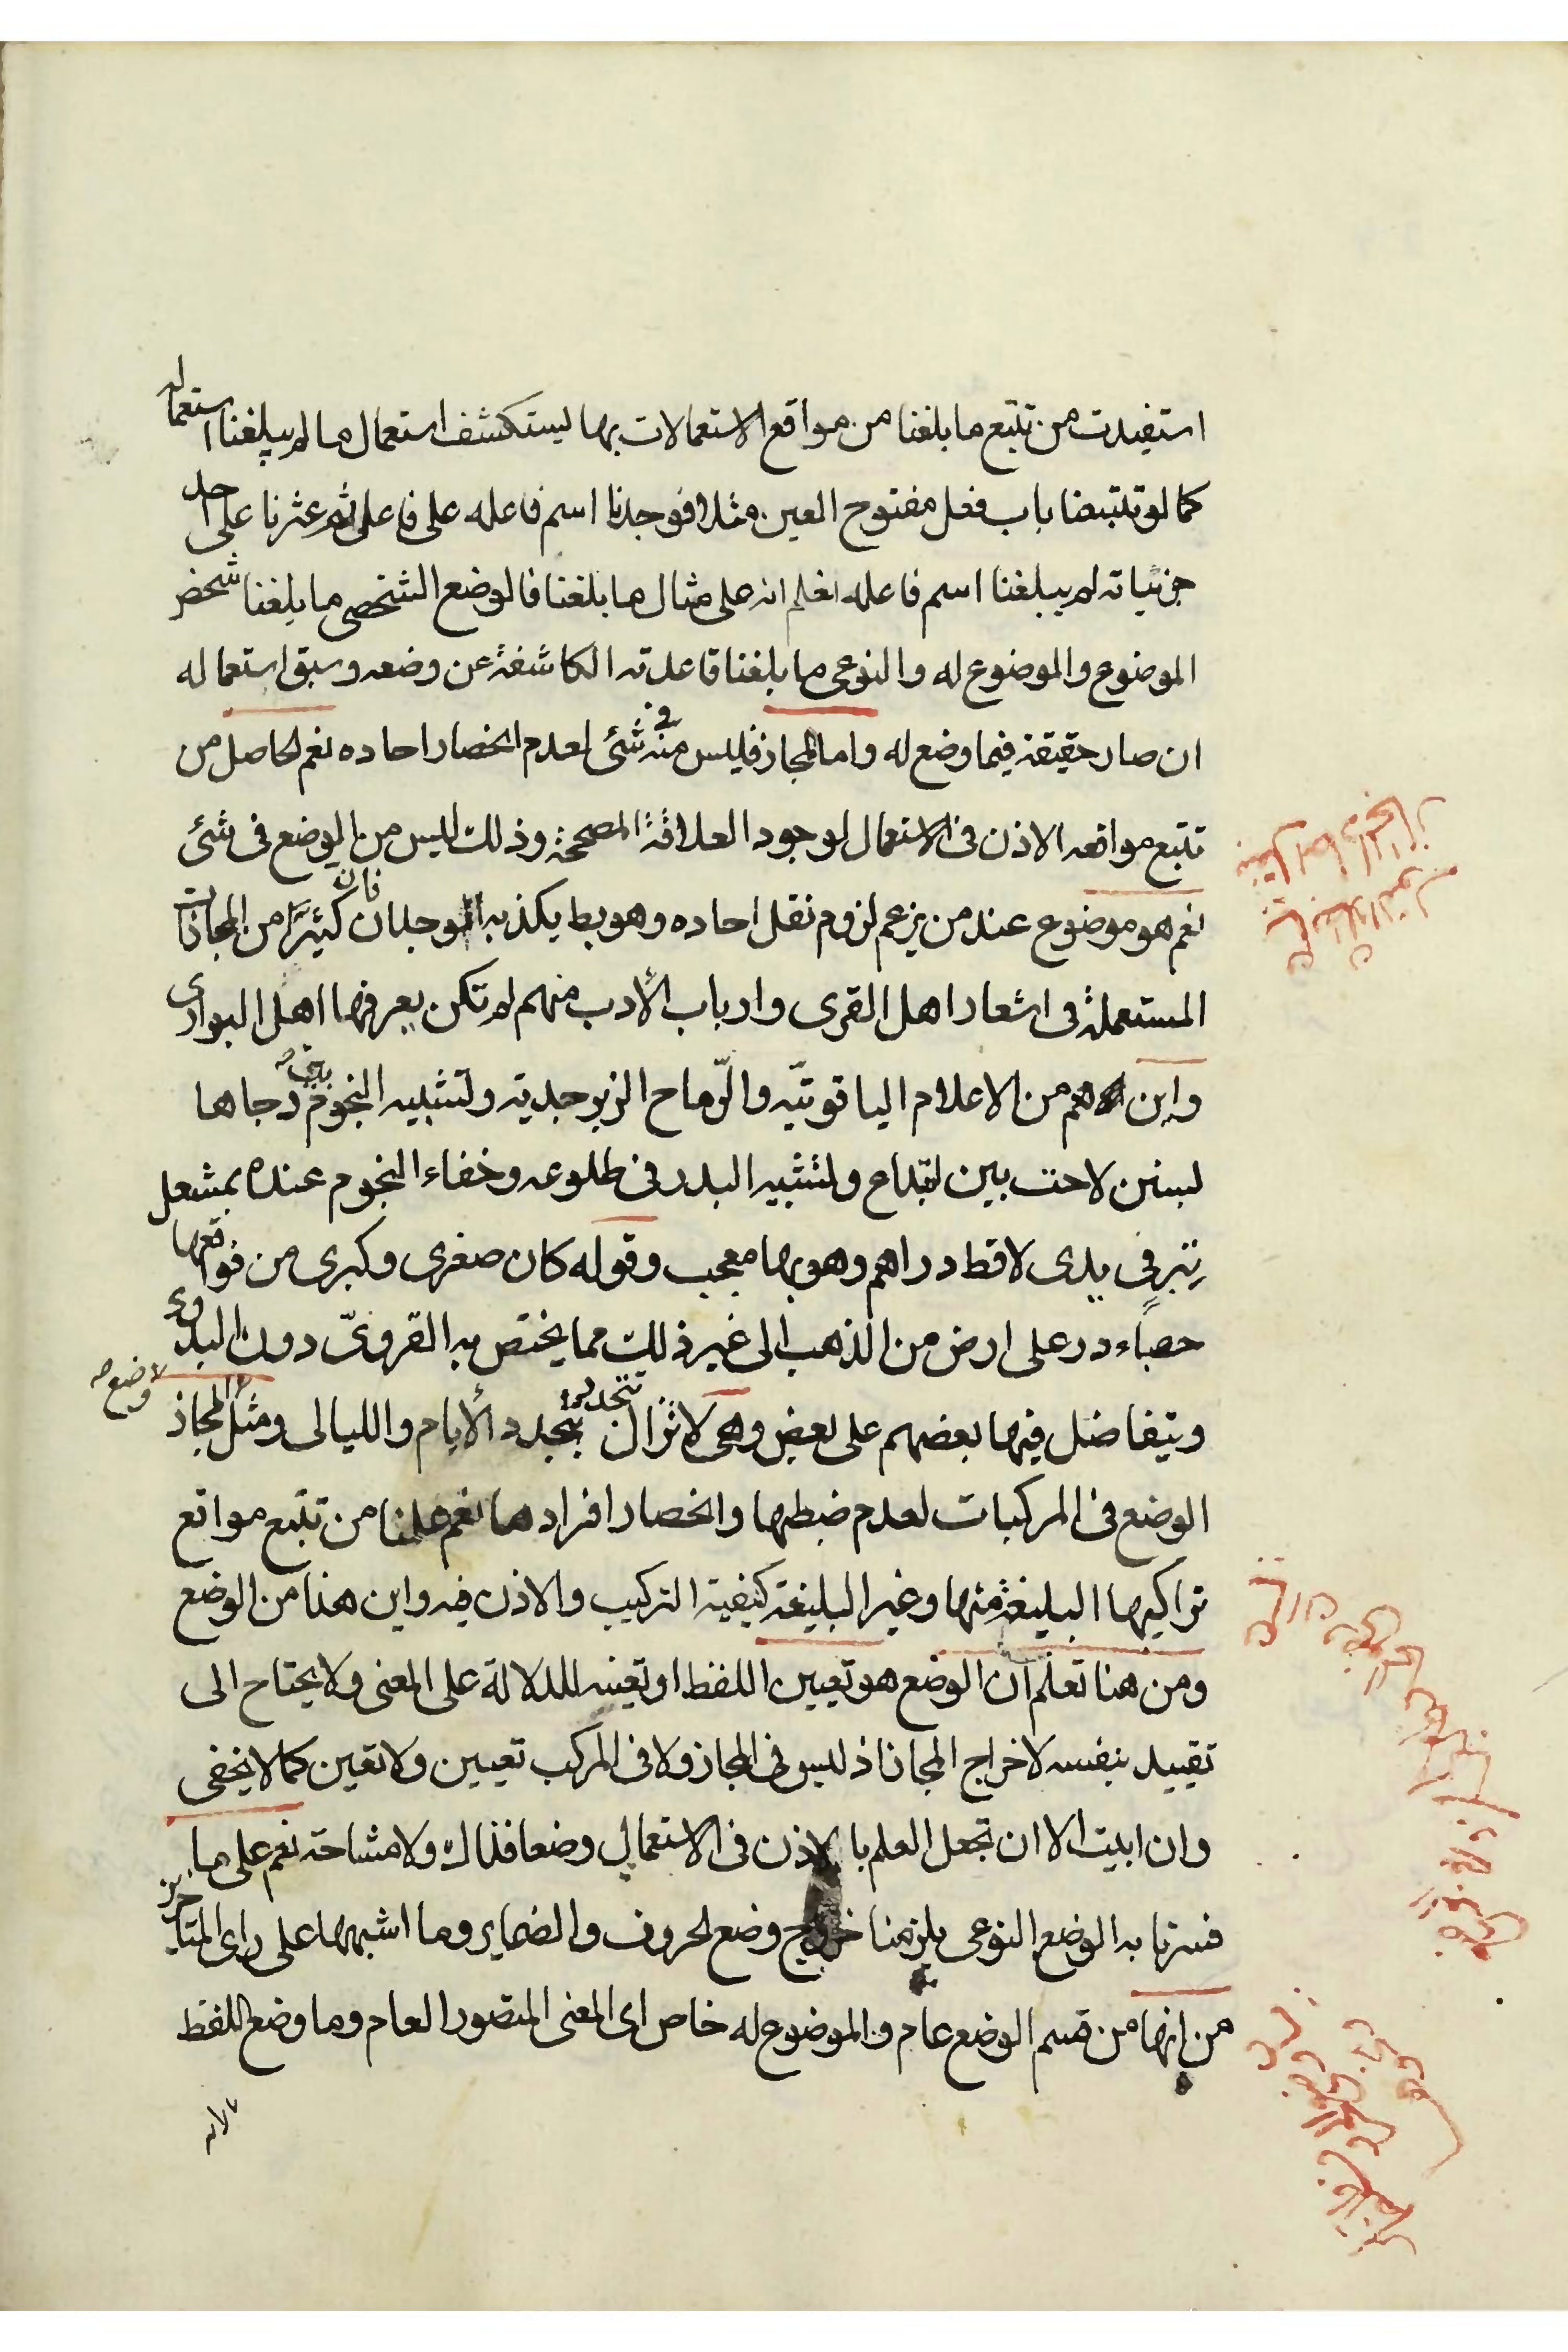 استفيدت من تتبع ما بلغنا من مواقع الاستعمالات بها ليستكشف استعمال ما لم يبلغنا استعماله
كما لو تتبعنا باب فعل مفتوح العين مثلا فوجدنا اسم فاعله على فاعل ثم عثرنا على احد
جزئياته لم يبلغنا اسم فاعله نعلم انه على مثال ما بلغنا فالوضع الشخصي ما بلغنا شخص
الموضوع والموضوع له والنوعى ما بلغنا قاعدته الكاشفة عن وضعه وسبق استعماله
ان صار حقيقة فيما وضع له واما المجاز فليس منه فى شئى لعدم انحصار احاده نعم الحاصل من
تتبع مواقعه الاذن فى الاستعمال لوجود العلاقة المصححة وذلك ليس من الوضع فى شئى
نعم هو موضوع عند من يزعم لزوم نقل احاده وهو بط يكذبه الوجدان فان كثيرًا من المجازات
المستعملة فى اشعار اهل القرى وارباب الأدب منهم لم تكن يعرفها اهل البوادى
واين هم من الاعلام الياقوتيّه والرّماح الزبرجدية وتشبيه النجوم بين دجاها
بسنن لاحت بين ابتداع وتشبيه البدر فى طلوعه وخفاء النجوم عنده بمشعل
تبر فى يدى لاقط دراهم وهو بها معجب وقوله كان صغرى وكبرى من فواقعها
حصباء در على ارض من الذهب الى غير ذلك مما يختص به القروىّ دون البدوى
ويتفاضل فيها بعضهم على بعض وهى لا تزال تتجدد بتجدد الأيام والليالى ومثل المجاز لا وضع
الوضع فى المركبات لعدم ضبطها وانحصار افرادها نعم علمنا من تتبع مواقع
تراكيبها البليغة منها وغير البليغة كيفية التركيب والاذن فيه واين هذا من الوضع
ومن هنا تعلم ان الوضع هو تعيين اللفظ او تعينه للدلالة على المعنى ولا يحتاج الى
تقييد بنفسه لاخراج المجاز اذ ليس فى المجاز ولا فى المركب تعيين ولا تعين كما لا يخفى
وان ابيت الا ان تجعل العلم بالاذن فى الاستعمال وضعا فذاك ولا مشاحة نعم على ما
فسرنا به الوضع النوعى يلزمنا خروج وضع الحروف والضماير وما اشبهها على راى المتاخرين
من انها من قسم الوضع عام والموضوع له خاص اى المعنى المتصور العام وما وضع اللفظ